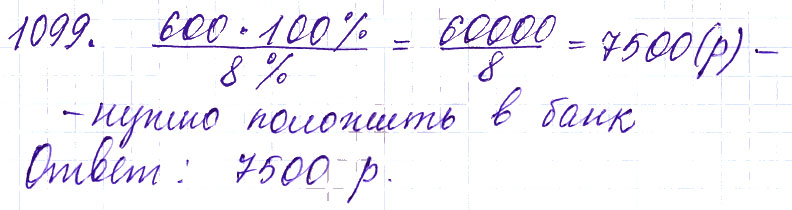 1099. 600 · 100% / 8% = 60000 / 8 = 7500 (р) –
– нужно положить в банк
Ответ: 7500 р.